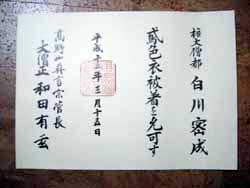 権大僧都 白川密成
色衣被着を免可す
平成十三年三月十五日
高野山真言宗管長
大僧正 和田有玄